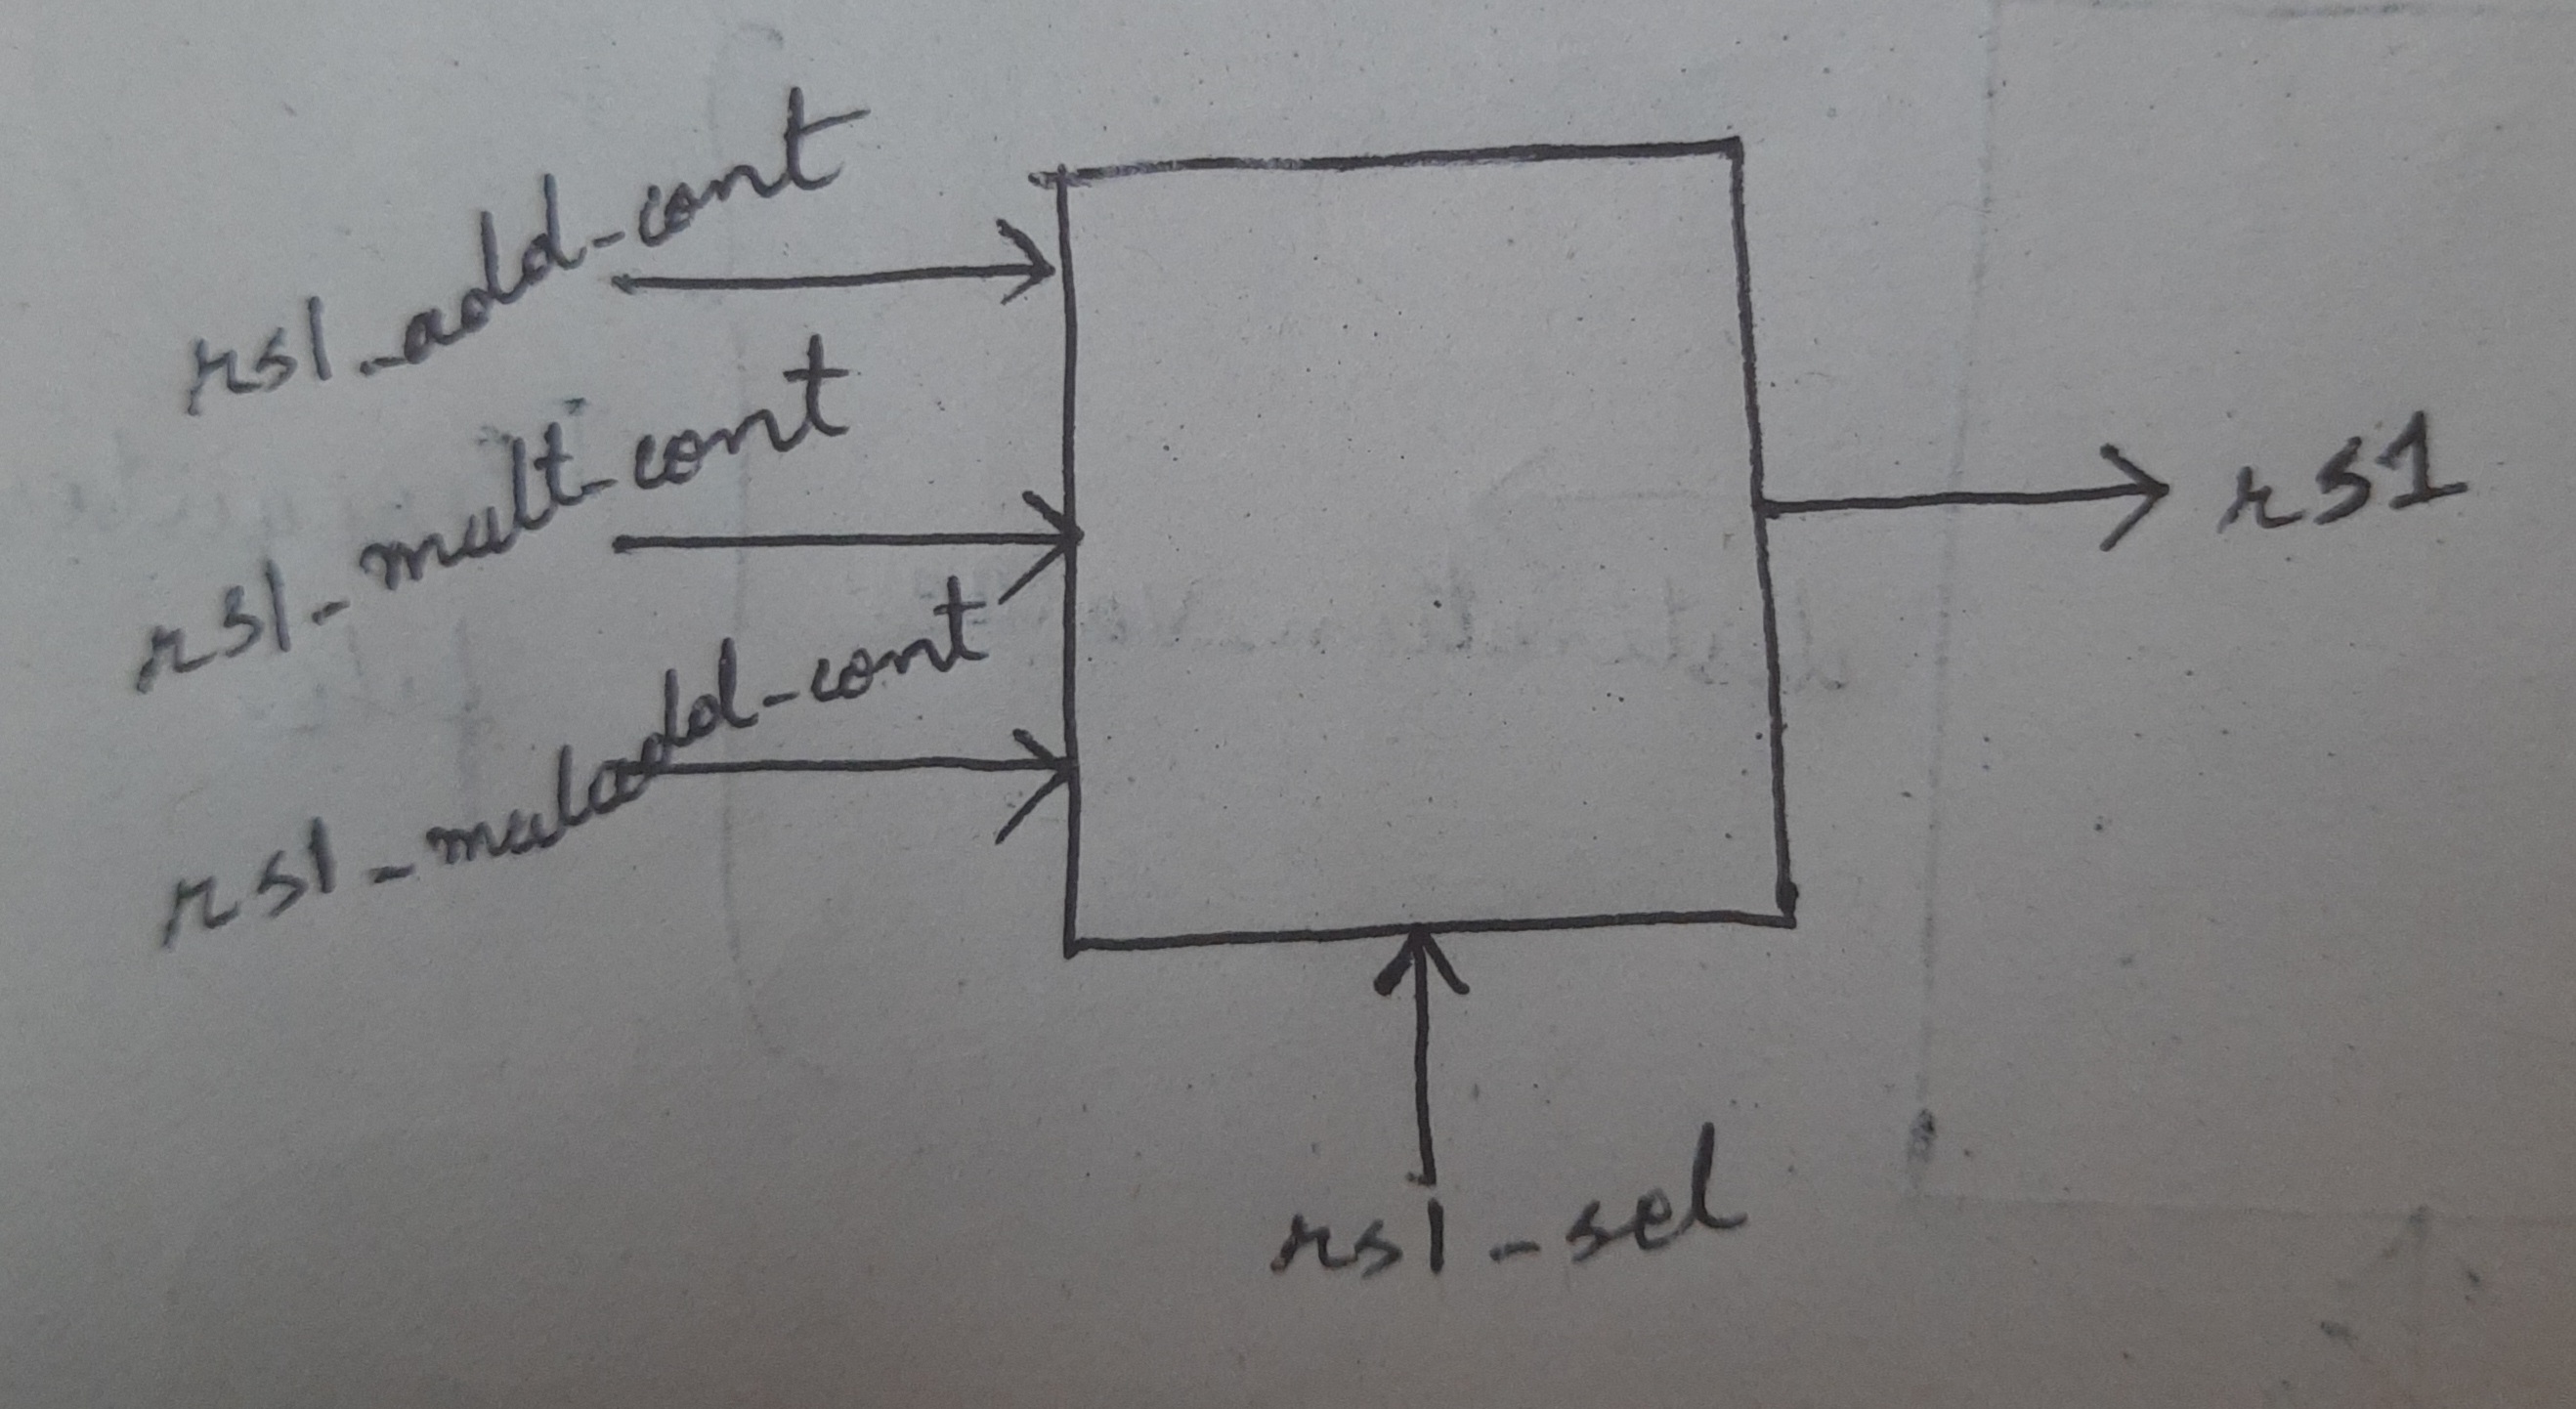 rs1_add_cont
rs1_mult_cont
rs1_muladd_cont
rs1
rs1_sel